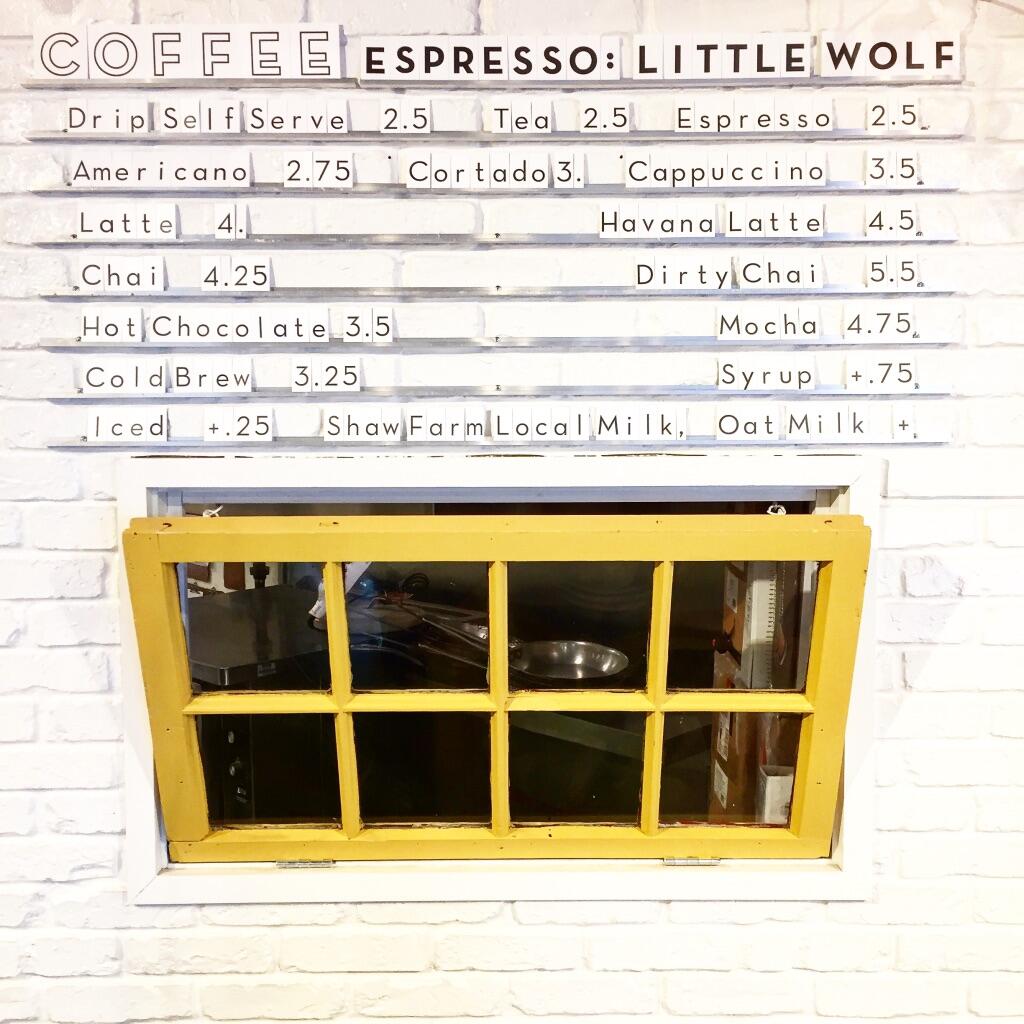 COFFEE ESPRESSO: LITTLE WOLF
Drip Self Serve 2.5 Tea 2.5 Espresso 2.5
Americano 2.75 Cortado 3. Cappuccino 3.5
Latte 4. Havana Latte 4.5
Chai 4.25 Dirty Chai 5.5
Hot Chocolate 3.5 Mocha 4.75
Cold Brew 3.25 Syrup +.75
Iced +.25 Shaw Farm Local Milk, Oat Milk +